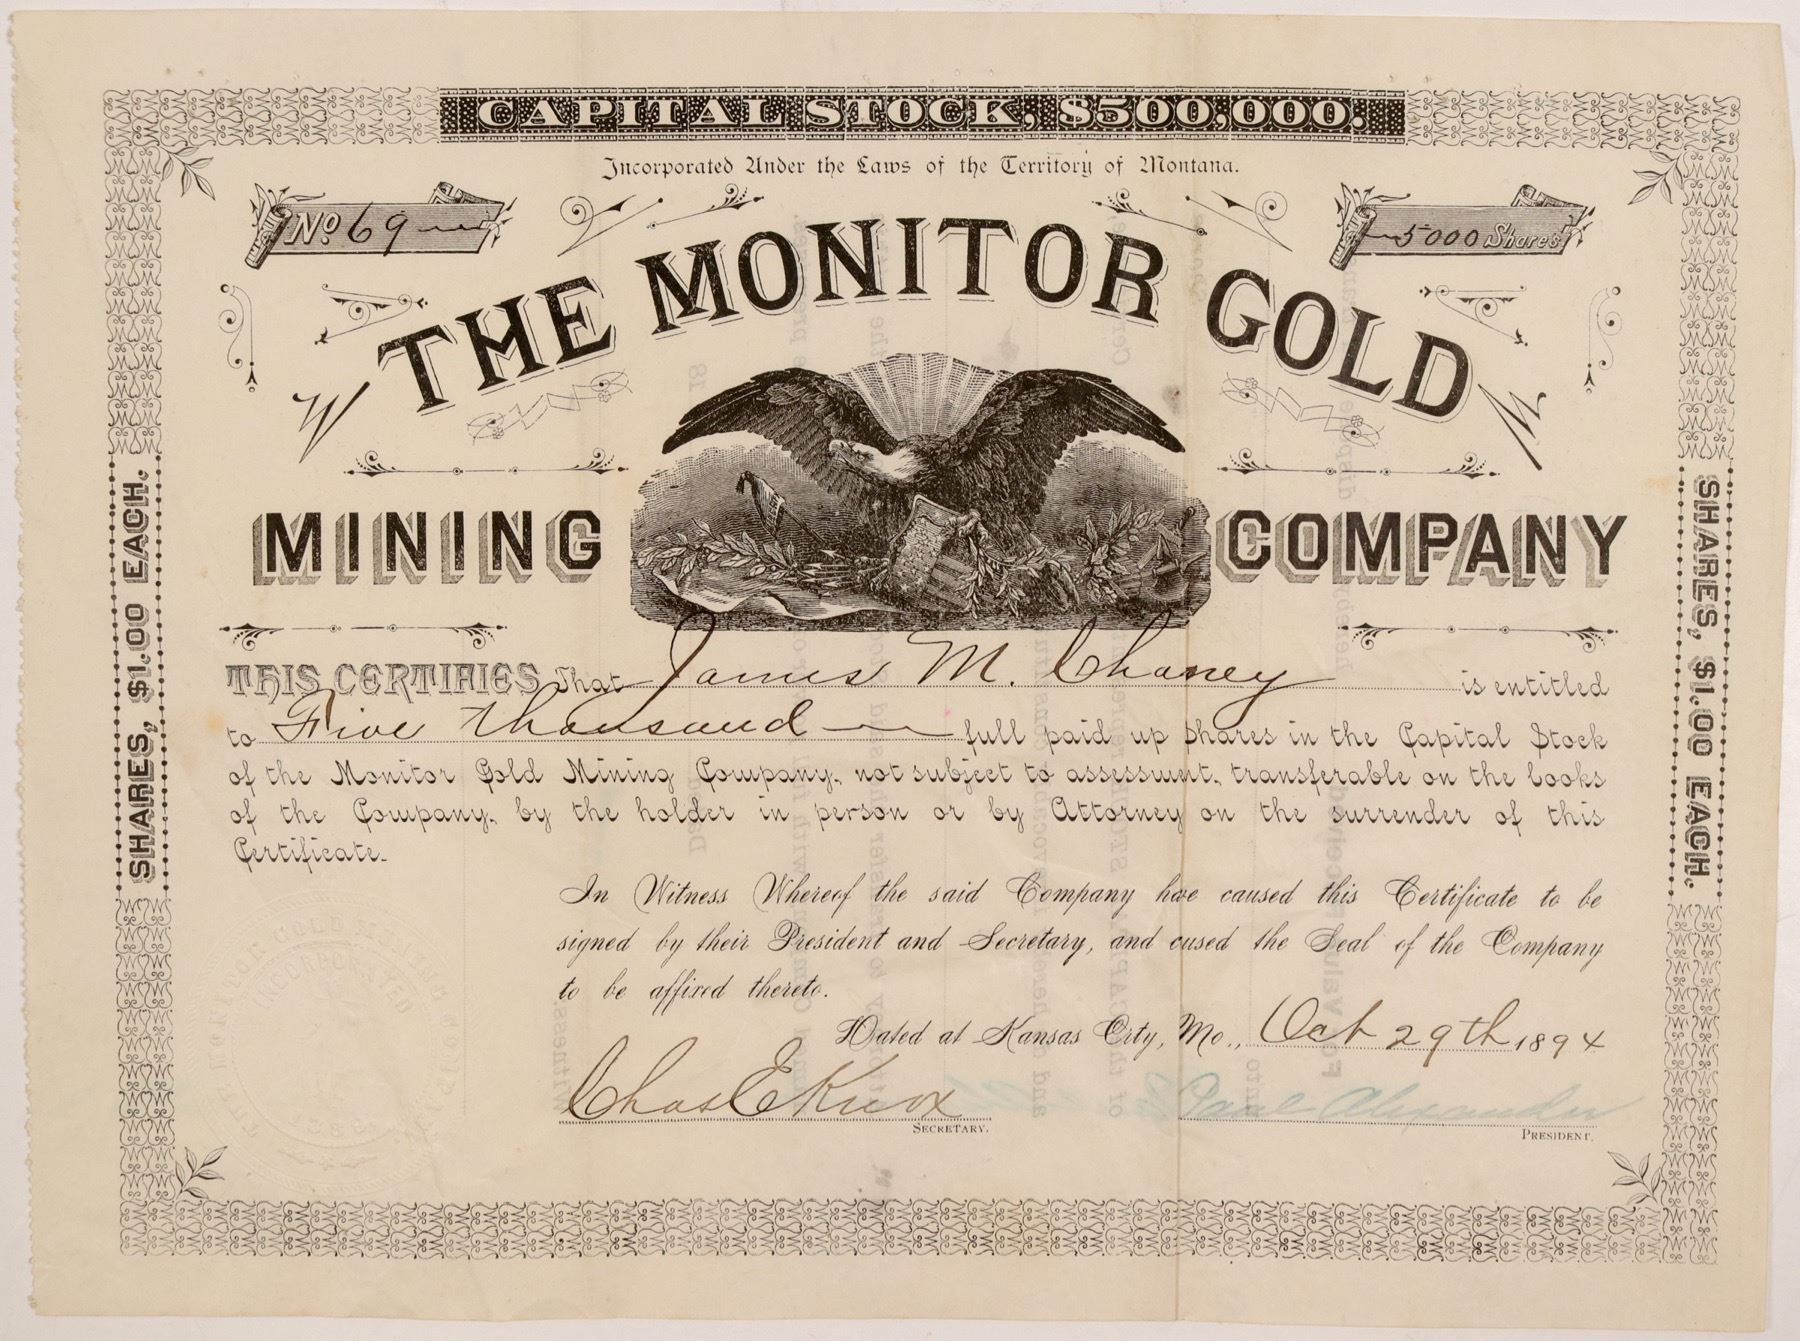 CAPITAL STOCK, $500,000.
Incorporated Under the Laws of the Territory of Montana.
No 69
5000 Shares
THE MONITOR GOLD
MINING COMPANY
SHARES, $1.00 EACH.
SHARES, $1.00 EACH.
THIS CERTIFIES That James M. Chaney is entitled
to Five thousand full paid up Shares in the Capital Stock
of the Monitor Gold Mining Company, not subject to assessment, transferable on the books
of the Company, by the holder in person or by Attorney on the surrender of this
Certificate.
In Witness Whereof the said Company have caused this Certificate to be
signed by their President and Secretary, and cused the Seal of the Company
to be affixed thereto.
Dated at Kansas City, Mo., Oct 29th 1894
Chas E Knox
SECRETARY.
Alexander
PRESIDENT.
INCORPORATED